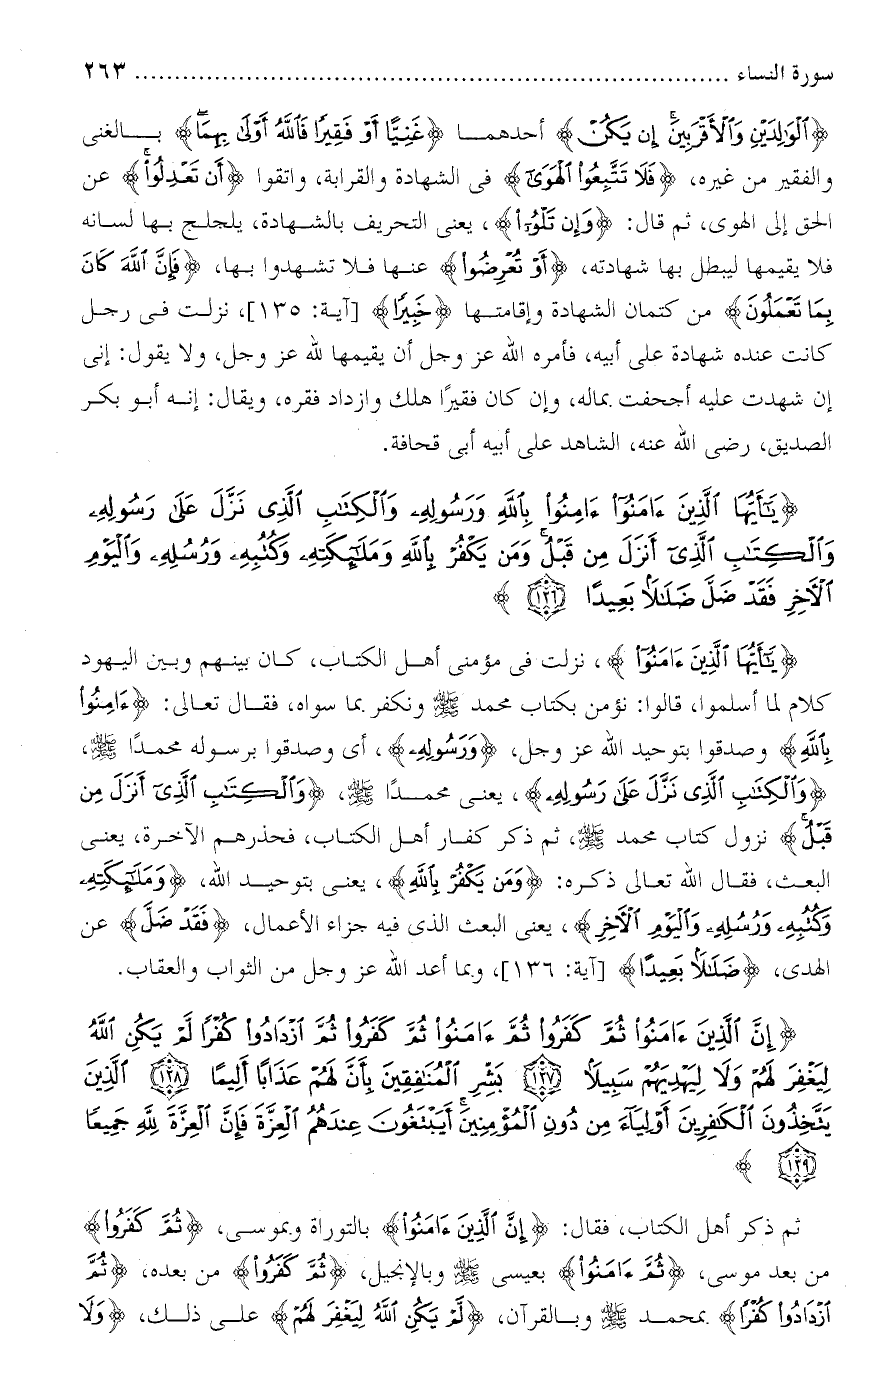 سورة النساء ........................................................................ ٢٦٣
﴿ٱلْوَٰلِدَيْنِ وَٱلْأَقْرَبِينَ ۚ إِن يَكُنْ﴾ أحدهمـــا ﴿غَنِيًّا أَوْ فَقِيرًا فَٱللَّهُ أَوْلَىٰ بِهِمَا ۖ﴾ بـــالغنى
والفقير من غيره، ﴿فَلَا تَتَّبِعُوا۟ ٱلْهَوَىٰٓ﴾ فى الشهادة والقرابة، واتقوا ﴿أَن تَعْدِلُوا۟ ۚ﴾ عن
الحق إلى الهوى، ثم قال: ﴿وَإِن تَلْوُۥٓا۟﴾، يعنى التحريف بالشـهادة، يلجلج بـها لسـانه
فلا يقيمها ليبطل بها شهادته، ﴿أَوْ تُعْرِضُوا۟﴾ عنـها فـلا تشـهدوا بـها، ﴿فَإِنَّ ٱللَّهَ كَانَ
بِمَا تَعْمَلُونَ﴾ من كتمان الشهادة وإقامتـها ﴿خَبِيرًا﴾ [آية: ١٣٥]، نزلـت فـى رجـل
كانت عنده شهادة على أبيه، فأمره الله عز وجل أن يقيمها لله عز وجل، ولا يقول: إنى
إن شهدت عليه أجحفت بماله، وإن كان فقيرًا هلك وازداد فقره، ويقال: إنـه أبـو بكـر
الصديق، رضى الله عنه، الشاهد على أبيه أبى قحافة.
﴿يَٰٓأَيُّهَا ٱلَّذِينَ ءَامَنُوٓا۟ ءَامِنُوا۟ بِٱللَّهِ وَرَسُولِهِۦ وَٱلْكِتَٰبِ ٱلَّذِى نَزَّلَ عَلَىٰ رَسُولِهِۦ
وَٱلْكِتَٰبِ ٱلَّذِىٓ أَنزَلَ مِن قَبْلُ ۚ وَمَن يَكْفُرْ بِٱللَّهِ وَمَلَٰٓئِكَتِهِۦ وَكُتُبِهِۦ وَرُسُلِهِۦ وَٱلْيَوْمِ
ٱلْءَاخِرِ فَقَدْ ضَلَّ ضَلَٰلًۢا بَعِيدًا ١٣٦ ﴾
﴿يَٰٓأَيُّهَا ٱلَّذِينَ ءَامَنُوٓا۟ ﴾، نزلت فى مؤمنى أهـل الكتـاب، كـان بينـهم وبين اليـهود
كلام لما أسلموا، قالوا: نؤمن بكتاب محمد ﷺ ونكفر بما سواه، فقـال تعـالى: ﴿ءَامِنُوا۟
بِٱللَّهِ﴾ وصدقوا بتوحيد الله عز وجل، ﴿وَرَسُولِهِۦ﴾، أى وصدقوا برسوله محمـدًا ﷺ،
﴿وَٱلْكِتَٰبِ ٱلَّذِى نَزَّلَ عَلَىٰ رَسُولِهِۦ﴾، يعنـى محمـدًا ﷺ، ﴿وَٱلْكِتَٰبِ ٱلَّذِىٓ أَنزَلَ مِن
قَبْلُ ۚ﴾ نزول كتاب محمد ﷺ، ثم ذكر كفـار أهـل الكتـاب، فحذرهـم الآخـرة، يعنـى
البعث، فقـال الله تعـالى ذكـره: ﴿وَمَن يَكْفُرْ بِٱللَّهِ﴾، يعنـى بتوحيـد الله، ﴿وَمَلَٰٓئِكَتِهِۦ
وَكُتُبِهِۦ وَرُسُلِهِۦ وَٱلْيَوْمِ ٱلْءَاخِرِ﴾، يعنى البعث الذى فيه جزاء الأعمال، ﴿فَقَدْ ضَلَّ﴾ عن
الهدى، ﴿ضَلَٰلًۢا بَعِيدًا﴾ [آية: ١٣٦]، وبما أعد الله عز وجل من الثواب والعقاب.
﴿إِنَّ ٱلَّذِينَ ءَامَنُوا۟ ثُمَّ كَفَرُوا۟ ثُمَّ ءَامَنُوا۟ ثُمَّ كَفَرُوا۟ ثُمَّ ٱزْدَادُوا۟ كُفْرًا لَّمْ يَكُنِ ٱللَّهُ
لِيَغْفِرَ لَهُمْ وَلَا لِيَهْدِيَهُمْ سَبِيلًۢا ١٣٧ بَشِّرِ ٱلْمُنَٰفِقِينَ بِأَنَّ لَهُمْ عَذَابًا أَلِيمًا ١٣٨ ٱلَّذِينَ
يَتَّخِذُونَ ٱلْكَٰفِرِينَ أَوْلِيَآءَ مِن دُونِ ٱلْمُؤْمِنِينَ ۚ أَيَبْتَغُونَ عِندَهُمُ ٱلْعِزَّةَ فَإِنَّ ٱلْعِزَّةَ لِلَّهِ جَمِيعًا
١٣٩ ﴾
ثم ذكر أهـل الكتـاب، فقـال: ﴿إِنَّ ٱلَّذِينَ ءَامَنُوا۟﴾ بالتوراة وبموسـى، ﴿ثُمَّ كَفَرُوا۟﴾
من بعد موسى، ﴿ثُمَّ ءَامَنُوا۟﴾ بعيسى ﷺ وبالإنجيل، ﴿ثُمَّ كَفَرُوا۟﴾ من بعده، ﴿ثُمَّ
ٱزْدَادُوا۟ كُفْرًا﴾ بمحمـد ﷺ وبـالقرآن، ﴿لَّمْ يَكُنِ ٱللَّهُ لِيَغْفِرَ لَهُمْ﴾ علـى ذلـك، ﴿وَلَا